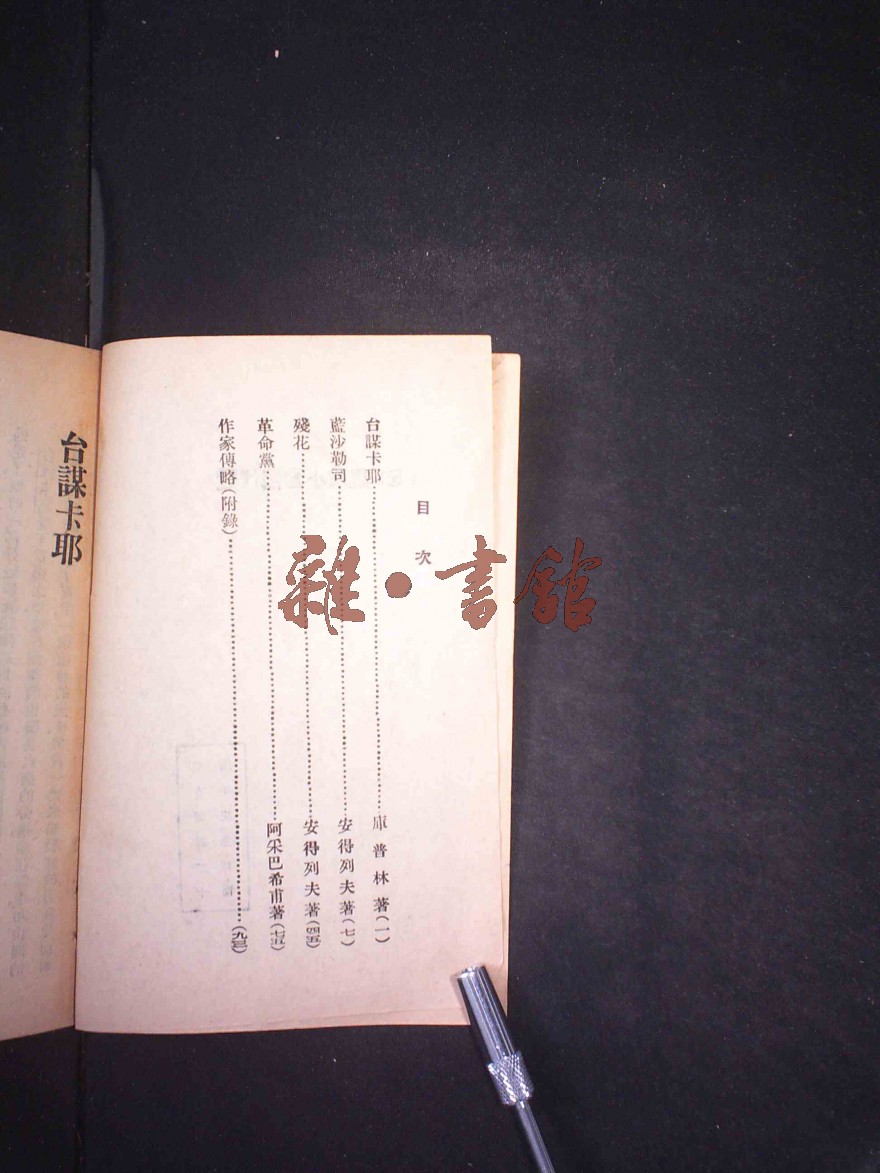 目次
台謀卡耶……庫普林著(一)
藍沙勒司……安得列夫著(七)
殘花……安得列夫著(四五)
革命黨……阿采巴希甫著(七五)
作家傳略(附錄)……(九三)
台謀卡耶
雜·書館